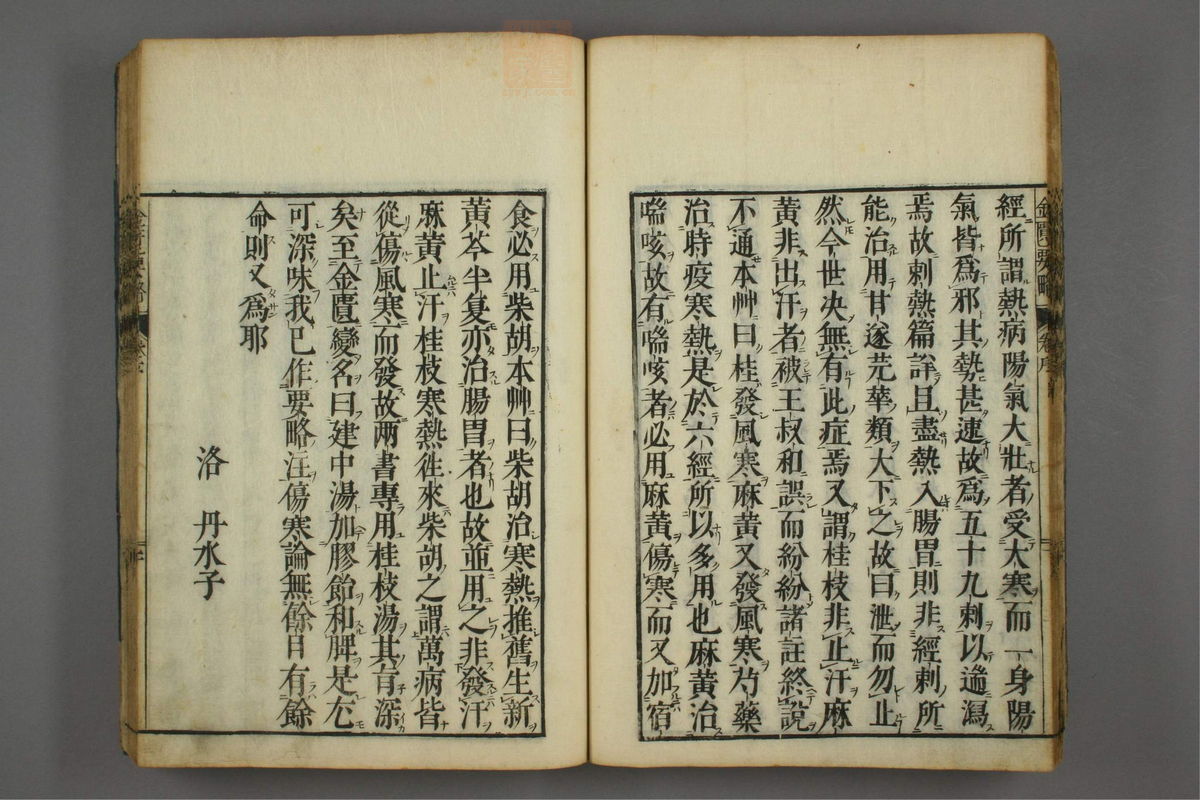 經所謂熱病陽氣大壯者受大寒而一身陽
氣皆爲邪其勢甚速故爲五十九刺以遄瀉
焉故刺熱篇詳且盡熱入腸胃則非經刺所
能治用甘遂芫華類大下之故曰泄而勿止
然今世决無有此症焉又謂桂枝非止汗麻
黃非出汗者被王叔和誤而紛紛諸註終說
不通本艸曰桂發風寒麻黃又發風寒芍藥
治時疫寒熱是於六經所以多用也麻黃治
喘咳故有喘咳者必用麻黃傷寒而又加宿
食必用柴胡本艸曰柴胡治寒熱推舊生新
黃芩半夏亦治腸胃者也故並用之非發汗
麻黃止汗桂枝寒熱徃來柴胡之謂萬病皆
從傷風寒而發故两書專用桂枝湯其肯深
矣至金匱變名曰建中湯加膠飴和脾是尤
可深味我巳作要略注傷寒論無餘日有餘
命則又爲耶
洛 丹水子
金匱要略 卷序